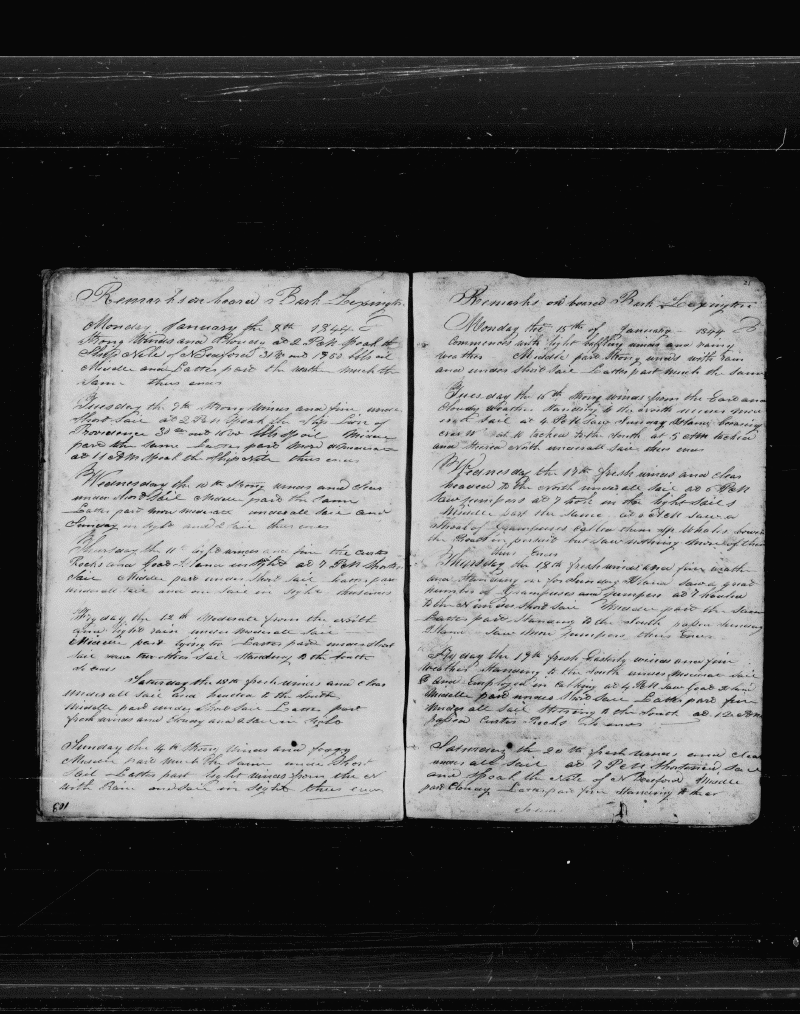 Remarks on board Bark Lexington
Monday January the 8th 1844
Strong Winds and Cloudy at 2 P.M Spoak the
Ship Nile of N Bedford 31 and 1950 bbls oil
Middle and Latter part the weather much the
same thus ends
Tuesday the 9th Strong winds and fine under
Short Sail at 2 P.M Spoak the Ship Lion of
Providence bbls oil Middle
part the same Latter part more Moderate
at 11 A.M Spoak the Ship Nile thus ends
Wednesday the 10th Strong winds and clear
under Short Sail Middle part the same
Latter part more moderate under all sail and
Sunday in sight and 2 sail thus ends
Thursday the 11th light winds and fine the
Rocks and Goat Island in sight at 7 P.M Short
Sail Middle part under Short Sail Latter part
under all sail and one sail in sight thus ends
Fryday the 12th Moderate from the North
and light rain under Moderate Sail
Middle part lying too Latter part under Short
Sail Standing to the South
so ends
Saturday the 13th fresh winds and clear
under all sail and headed to the South
Middle part under Short Sail Latter part
fresh winds and Cloudy and a sail in sight
Sunday the 14th Strong winds and foggy
Middle part much the same under Short
Sail Latter part light winds from the N
with Rain and sail in sight thus ends
Remarks on board Bark Lexington
Monday the 15th of January 1844
Commences with light baffling winds and rainy
weather Middle part Strong winds with rain
and under Short Sail Latter part much the same
Tuesday the 16th Strong winds from the East and
Cloudy weather Standing to the North under
Sail at 4 P.M Saw Sunday Island bearing
at 11 tacked to the South at 5 AM tacked
and Steered North under all Sail thus ends
Wednesday the 17th fresh winds and clear
headed to the North under all sail at 5 P.M
Saw jumpers at 7 took in the light Sails
Middle part the Same at A.M Saw a
Shoal of Grampuses Called them Sp Whales lowered
the Boats in pursuit but saw nothing more of them
thus Ends
Thursday the 18th fresh winds and fine weather
and Standing in for Sunday Island Saw a great
number of Grampuses and jumpers at 7 headed
to the N under Short Sail Middle part the Same
Latter part Standing to the South passed Sunday
Island Saw Some jumpers thus Ends
Fryday the 19th fresh Easterly winds and fine
weather Standing to the South under Sail
and Employed in at 4 P.M Saw Goat Island
Middle part under Short Sail Latter part fine
under all Sail Steering to the South at 12 A.M
passed Rocks So ends
Saturday the 20th fresh winds and clear
under all Sail at 7 P.M Shortened Sail
and Spoak the Nile of N Bedford Middle
part Cloudy Latter part fine Standing to the